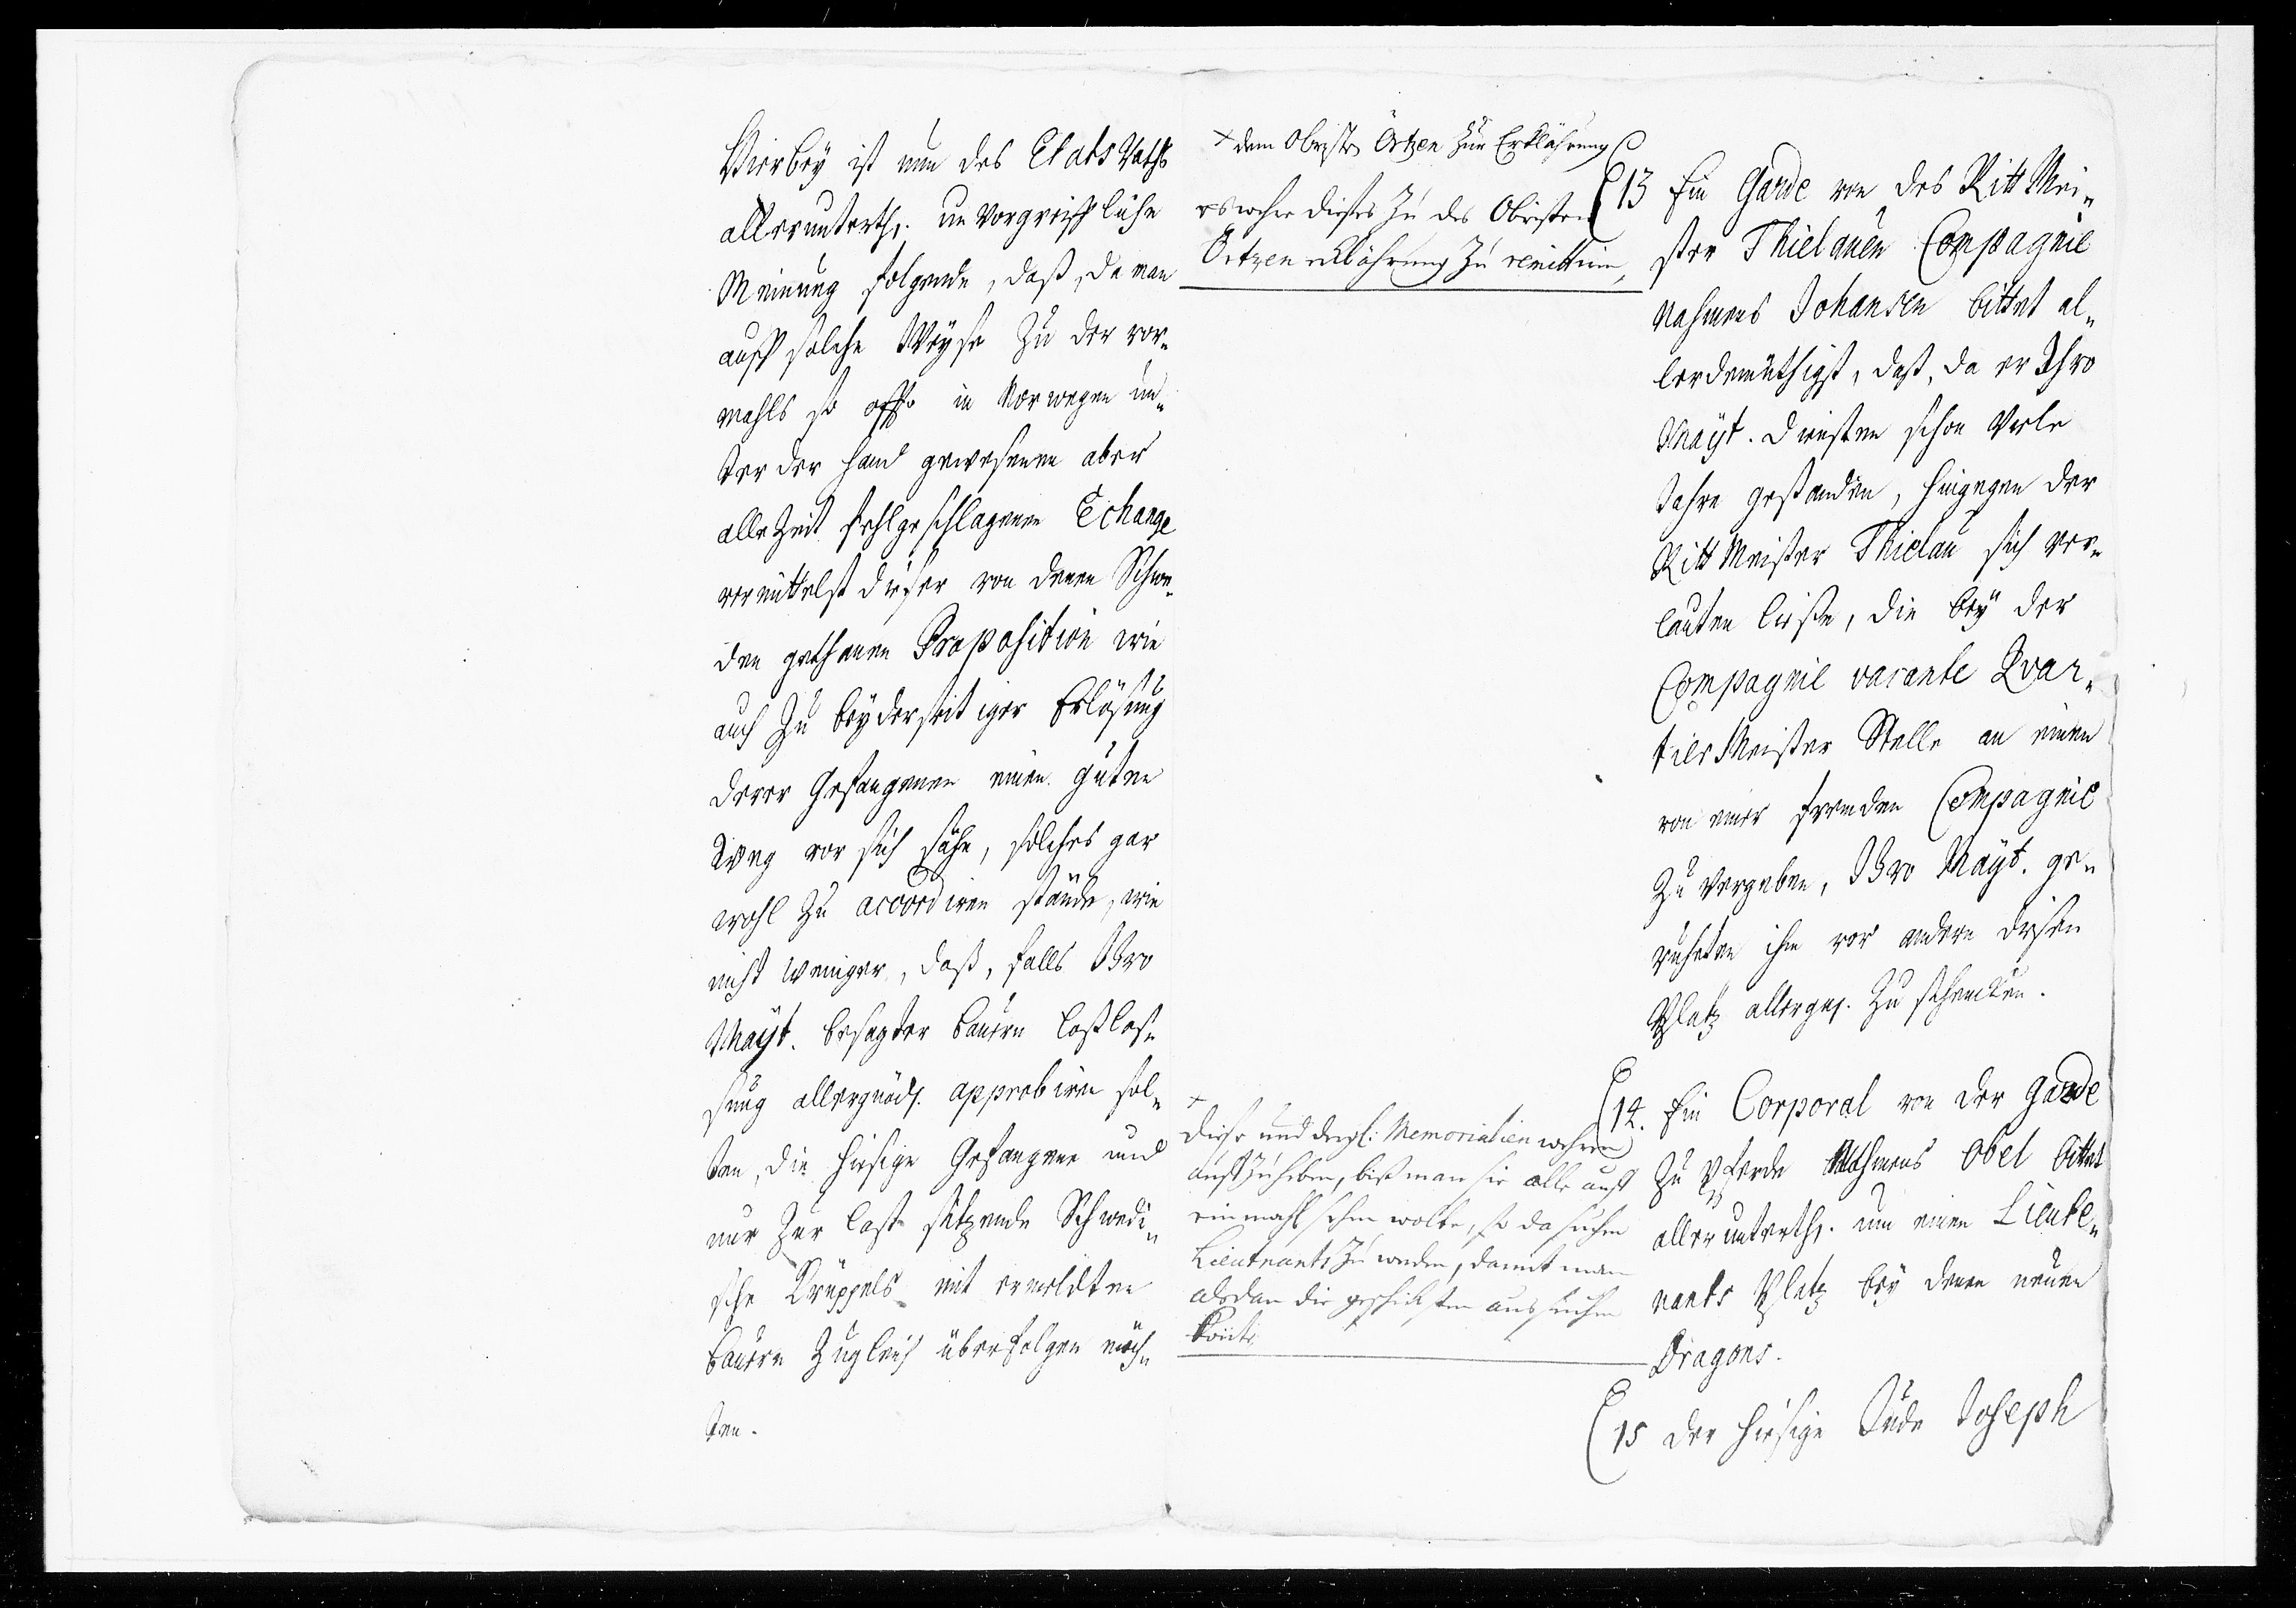 Hierbey ist nun des Etats Raths
allerunterth. un vorgreiffliche
Meinung folgende, daß, da man
auff solche Weyse zu der vor¬
mahls so offte in Norwegen un¬
ter der Hand gewesenen aber
alle Zeit fehlgeschlagenen Echange
vermittelst dieser von denen Schwe¬
den gethanen Proposition wie
auch zu beyderseitiger Erlösung
derer Gefangenen einen guten
Weg vor sich sähe, solches gar
wohl zu accordiren stände, wie
nicht weniger, daß, falls Ihro
Mayt. besagter Bauren Loßlas¬
sung allergnäd. approbiren sol¬
ten, die hiesige Gefangene und
nur zur last sitzende Schwedi¬
sche Krüppels mit ermeldten
Bauren zugleich überfolgen möch¬
ten.
+ dem Obrist Örtzen zur Erklährung
es wehre dieses zu des Obristen
Örtzen erklährung zu remittiren,
13 Ein Garde von des Ritt Mei¬
ster Thielauen Compagnie
Nahmens Johansen bittet al¬
lerdemüthigst, daß, da er Ihro
Mayt. Diensten schon viele
Jahre gestanden, hingegen der
Ritt Meister Thielau sich ver¬
lauten ließe, die bey der
Compagnie vacante Qvar¬
tier Meister Stelle an einen
von einer frembden Compagnie
zu vergeben, Ihro Mayt. ge¬
ruheten ihm vor andern diesen
Platz allergn. zu schencken.
+
diese und dergl: Memorialien wehren
auffzuheben, biß man sie alle auff
einmahl sehen wolte, so da suchen
Lieutnants zu werden, damit man
alsdan die geschicktesten aussuchen
könte
14. Ein Corporal von der Garde
zu Pferde Nahmens Obel bittet
allerunterth. um einen Lieute¬
nants Platz bey denen neuen
Dragons.
15 Der hiesige Jude Joseph